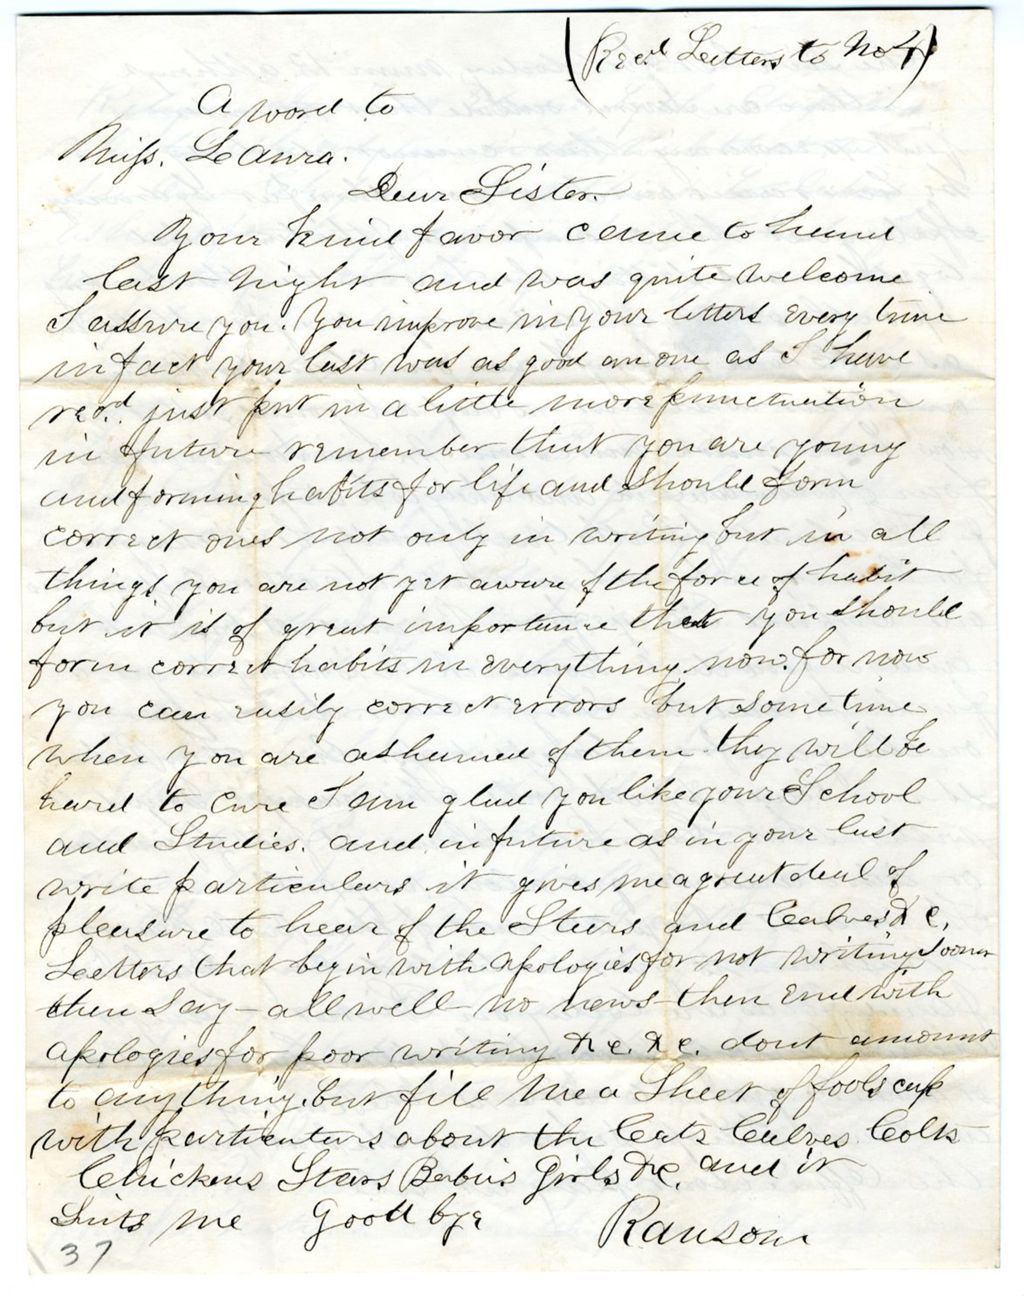 (Recd. Letters to No 4)
A word to
Miss. Laura.
Dear Sister.
Your kind favor came to hand
last night and was quite welcome
I assure you. You improve in your letters every time
in fact your last was as good an one as I have
recd. just put in a little more punctuation
in future remember that you are young
and forming habits for life and should form
correct ones not only in writing but in all
things you are not yet aware of the force of habit
but it is of great importance that you should
form correct habits in everything now. for now
you can easily correct errors but some time
when you are ashamed of them they will be
hard to cure I am glad you like your School
and Studies. and in future as in your last
write particulars it gives me a great deal of
pleasure to hear of the Steers and Calves &c.
Letters that begin with apologies for not writing sooner
then say – all well – no news – then end with
apologies for poor writing &c. &c. dont amount
to anything. but fill me a Sheet of foolscap
with particulars about the Cats Calves Colts
Chickens Stears Babies Girls &c. and it
Suits me Good bye
Ransom
37